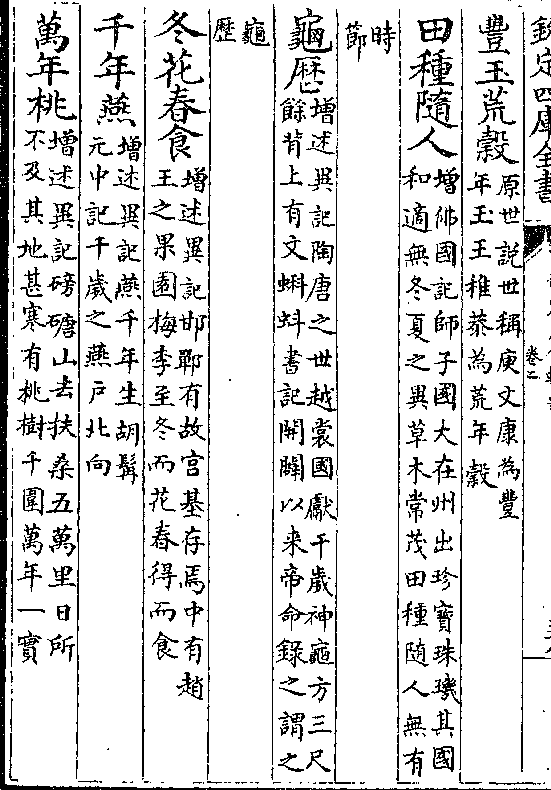 欽定四庫全書
卷二
豐玉荒穀
原世說世稱庾文康為豐
年玉王稚恭為荒年穀
田種隨人
增佛國記師子國大在州出珍寶珠璣其國
和適無冬夏之異草木常茂田種隨人無有
時
節
龜厯
增述異記陶唐之世越裳國獻千歲神龜方三尺
餘背上有文蝌蚪書記開闢以来帝命錄之謂之
龜
歷
冬花春食
增述異記邯鄲有故宫基存焉中有趙
王之果園梅李至冬而花春得而食
千年燕
增述異記燕千年生胡髯
元中記千歲之燕戸北向
萬年桃
增述異記磅磄山去扶桑五萬里日所
不及其地甚寒有桃樹千圍萬年一實